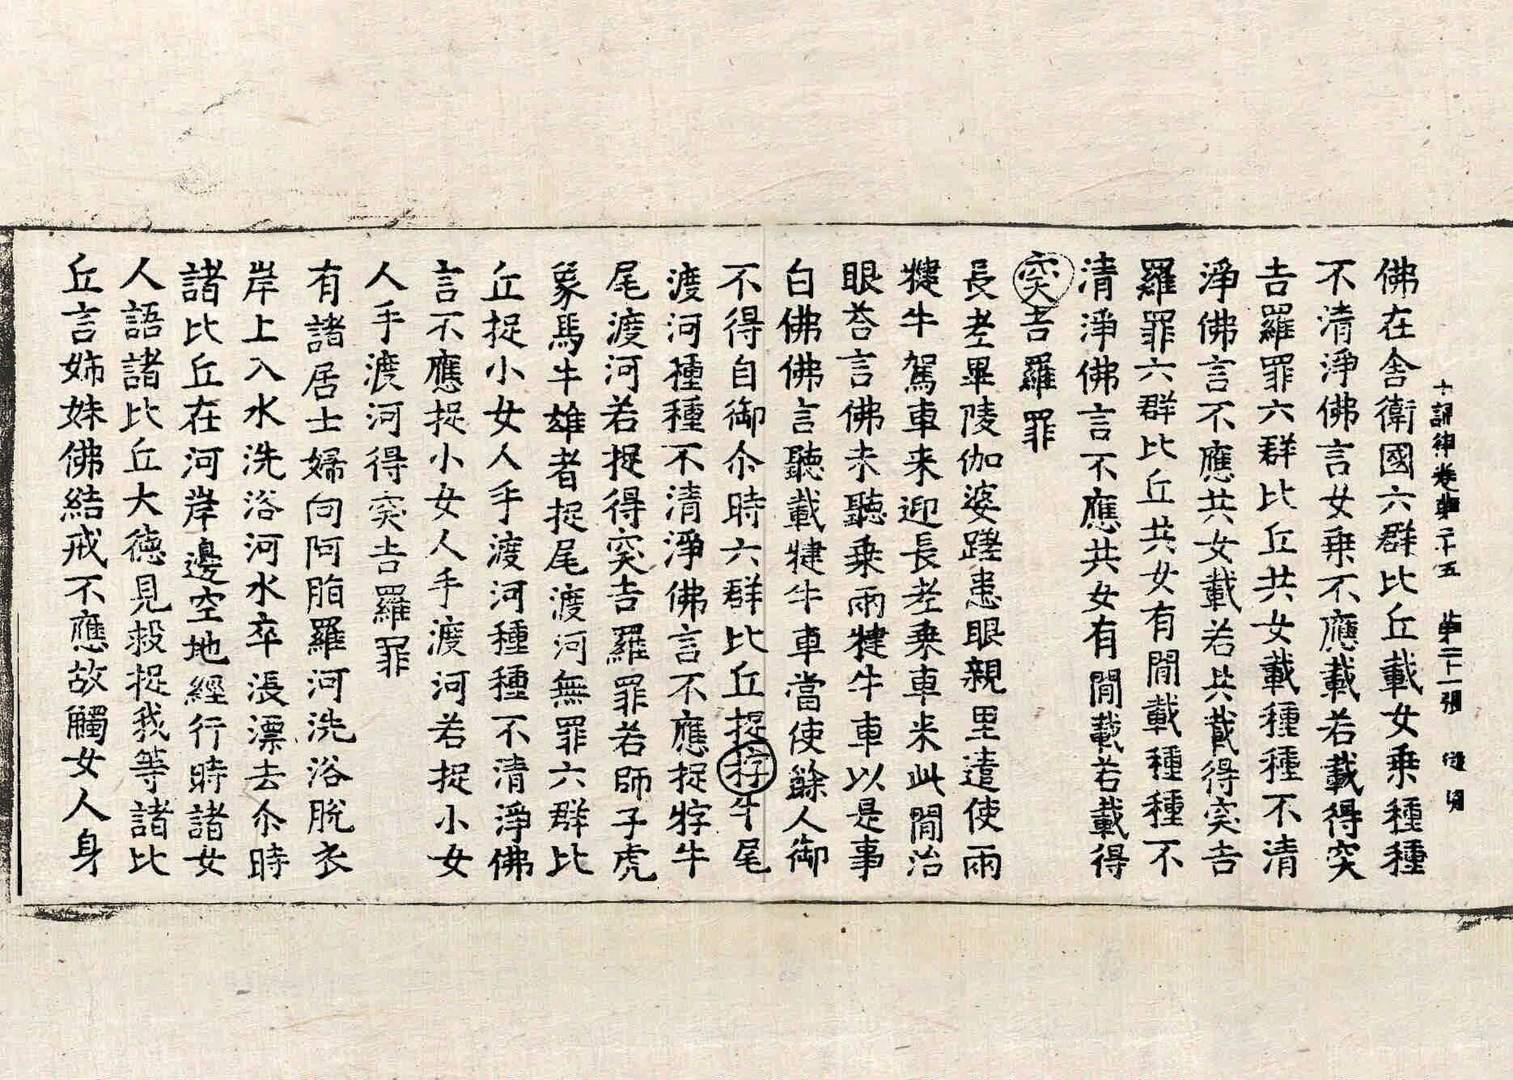 十誦律卷第二十五 第二十一張 從
佛在舍衛國六群比丘載女乗種種
不清淨佛言女乗不應載若載得突
吉羅罪六群比丘共女載種種不清
淨佛言不應共女載若共載得突吉
羅罪六群比丘共女有閒載種種不
清淨佛言不應共女有閒載若載得
突吉羅罪
長老畢陵伽婆蹉患眼親里遣使兩
犍牛駕車来迎長老乗車来此閒治
眼荅言佛未聽乗兩犍牛車以是事
白佛佛言聽載犍牛車當使餘人御
不得自御尒時六群比丘捉牸牛尾
渡河種種不清淨佛言不應捉牸牛
尾渡河若捉得突吉羅罪若師子虎
象馬牛雄者捉尾渡河無罪六群比
丘捉小女人手渡河種種不清淨佛
言不應捉小女人手渡河若捉小女
人手渡河得突吉羅罪
有諸居士婦向阿脂羅河洗浴脫衣
岸上入水洗浴河水卒漲漂去尒時
諸比丘在河岸邊空地經行時諸女
人語諸比丘大德見救捉我等諸比
丘言姊妹佛結戒不應故觸女人身